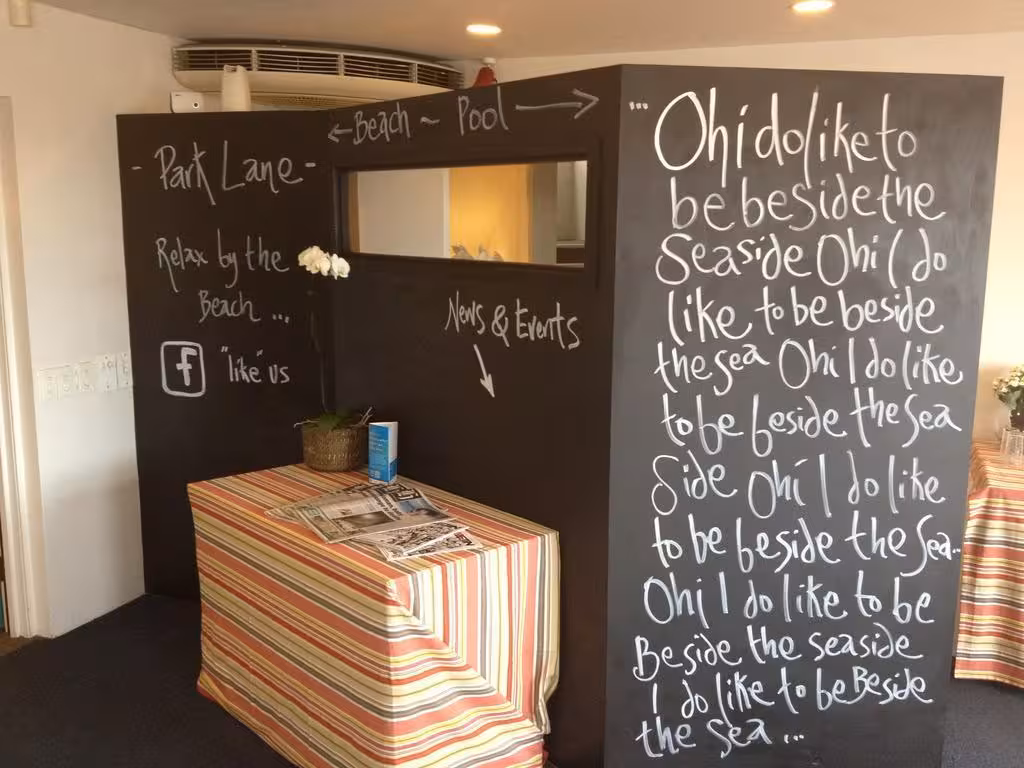 - Park Lane -
Relax by the
Beach ...
f "like" us
← Beach ~ Pool →
News & Events
... Oh i do like to
be beside the
Seaside Oh i I do
like to be beside
the sea Oh i I do like
to be beside the Sea
Side Oh i I do like
to be beside the Sea..
Oh i I do like to be
Beside the seaside
I do like to be Beside
the Sea ...